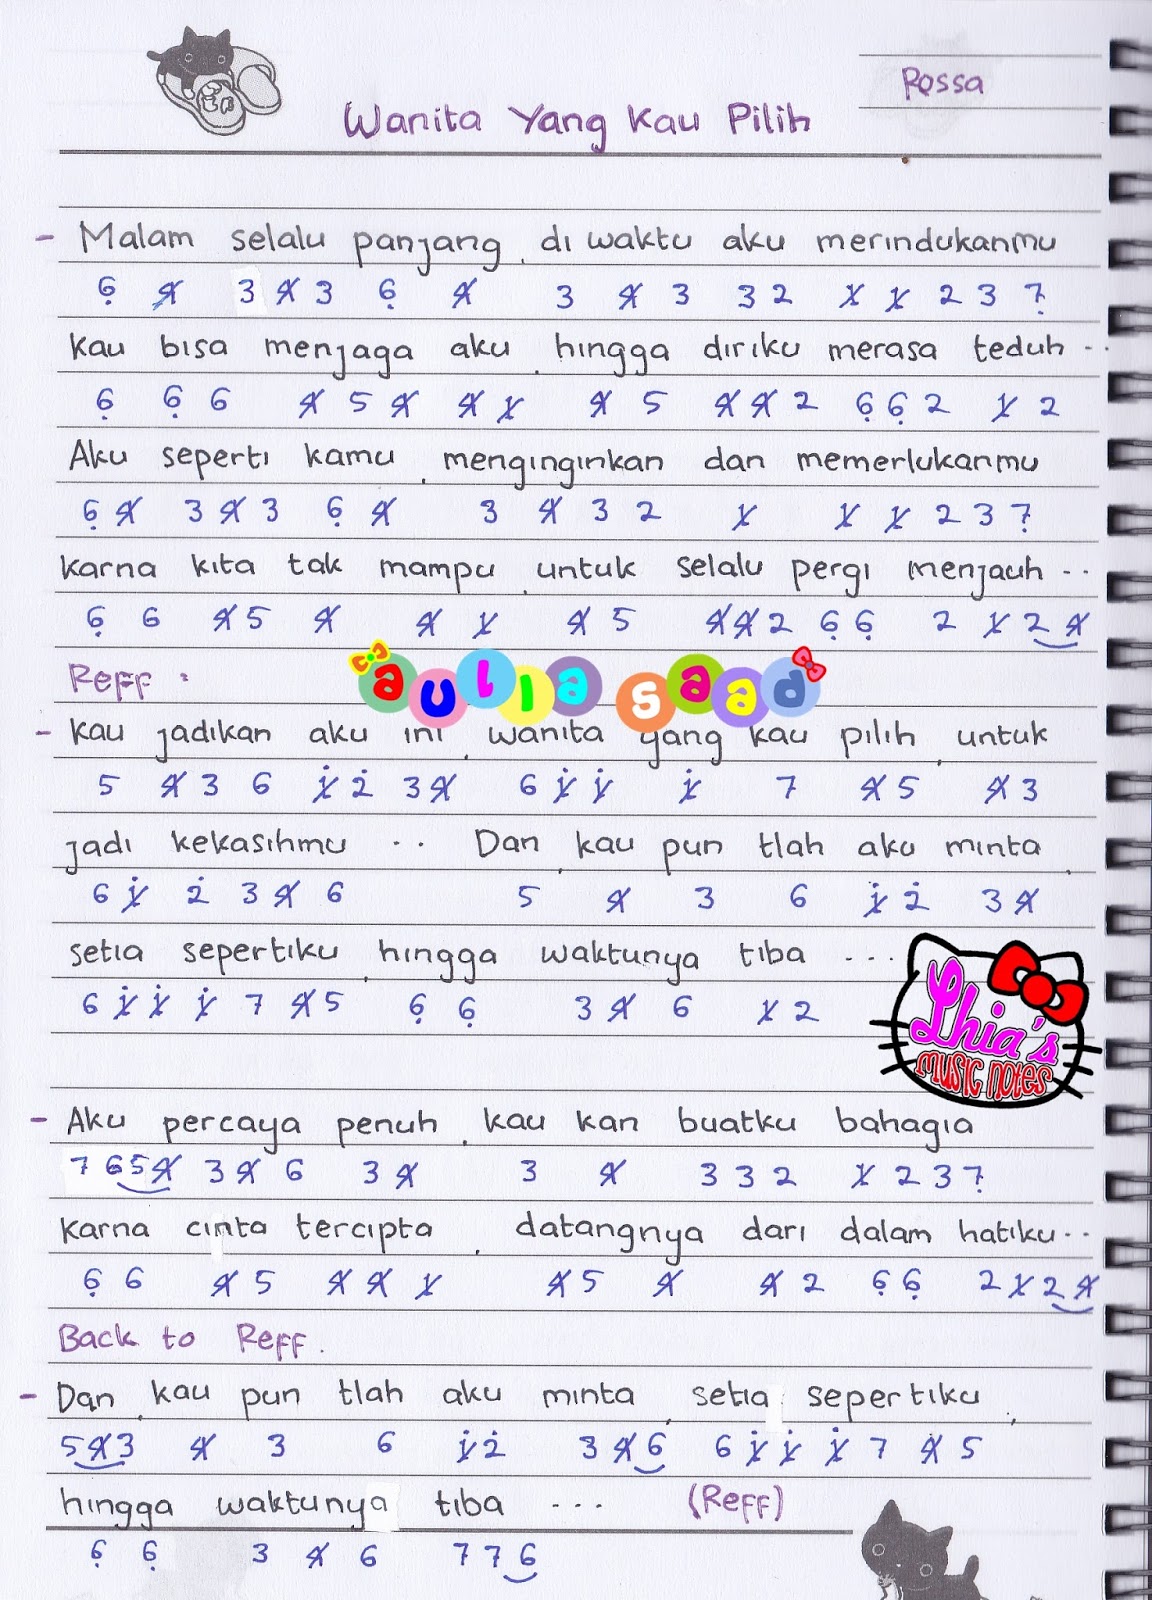 Rossa
Wanita Yang Kau Pilih
- Malam selalu panjang, di waktu aku merindukanmu
6̣ 4̸ 3 4̸ 3 6̣ 4̸ 3 4̸ 3 3 2 1̸ 1̸ 2 3 7̣
kau bisa menjaga aku, hingga diriku merasa teduh ..
6̣ 6̣ 6 4̸ 5 4̸ 4̸ 1̸ 4̸ 5 4̸ 4̸ 2 6̣ 6̣ 2 1̸ 2
Aku seperti kamu, menginginkan dan memerlukanmu
6̣ 4̸ 3 4̸ 3 6̣ 4̸ 3 4̸ 3 2 1̸ 1̸ 1̸ 2 3 7̣
karna kita tak mampu, untuk selalu pergi menjauh ..
6̣ 6 4̸ 5 4̸ 4̸ 1̸ 4̸ 5 4̸ 4̸ 2 6̣ 6̣ 2 1̸ 2 4̸
Reff :
aulia saad
- kau jadikan aku ini, wanita yang kau pilih, untuk
5 4̸ 3 6 1̸̇ 2̇ 3 4̸ 6 1̸̇ 1̸̇ 1̸̇ 7 4̸ 5 4̸ 3
jadi kekasihmu .. Dan, kau pun tlah aku minta,
6 1̸̇ 2̇ 3 4̸ 6 5 4̸ 3 6 1̸̇ 2̇ 3 4̸
setia sepertiku, hingga waktunya tiba ...
6 1̸̇ 1̸̇ 1̸̇ 7 4̸ 5 6̣ 6̣ 3 4̸ 6 1̸ 2
Lhia's
music notes
- Aku percaya penuh, kau kan buatku bahagia
7 6 5 4̸ 3 4̸ 6 3 4̸ 3 4̸ 3 3 2 1̸ 2 3 7̣
karna cinta tercipta, datangnya dari dalam hatiku ..
6̣ 6 4̸ 5 4̸ 4̸ 1̸ 4̸ 5 4̸ 4̸ 2 6̣ 6̣ 2 1̸ 2 4̸
Back to Reff.
- Dan, kau pun tlah aku minta, setia sepertiku,
5 4̸ 3 4̸ 3 6 1̸̇ 2̇ 3 4̸ 6 6 1̸̇ 1̸̇ 1̸̇ 7 4̸ 5
hingga waktunya tiba ... (Reff)
6̣ 6̣ 3 4̸ 6 7 7 6